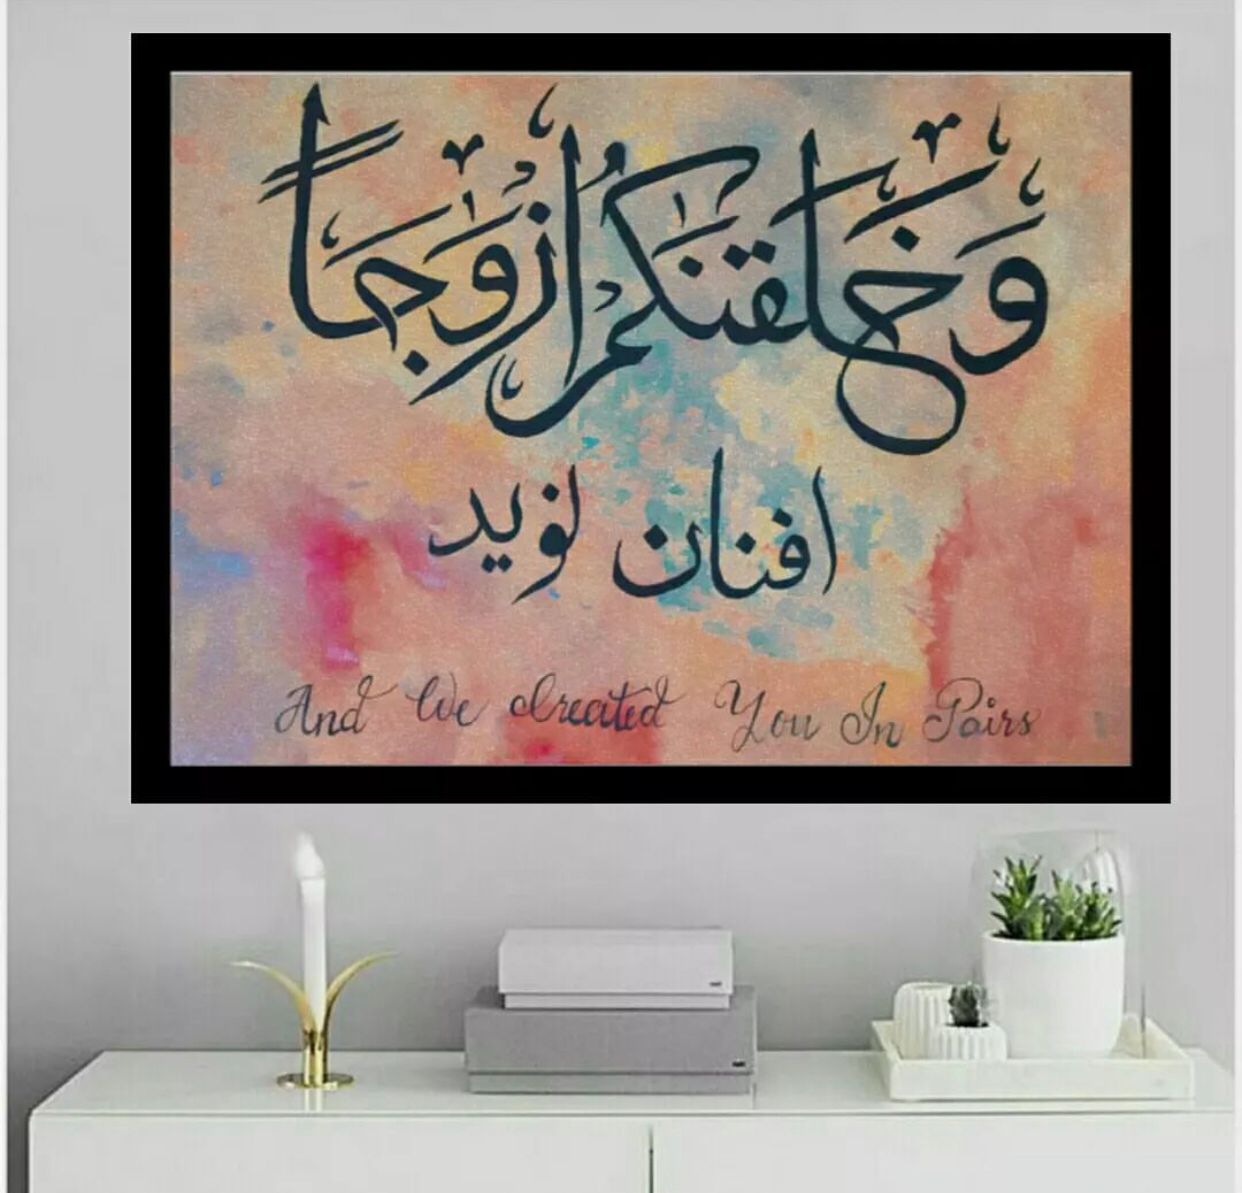 وَخَلَقْنَٰكُمْ أَزْوَٰجًا
افنان نويد
And We Created You In Pairs